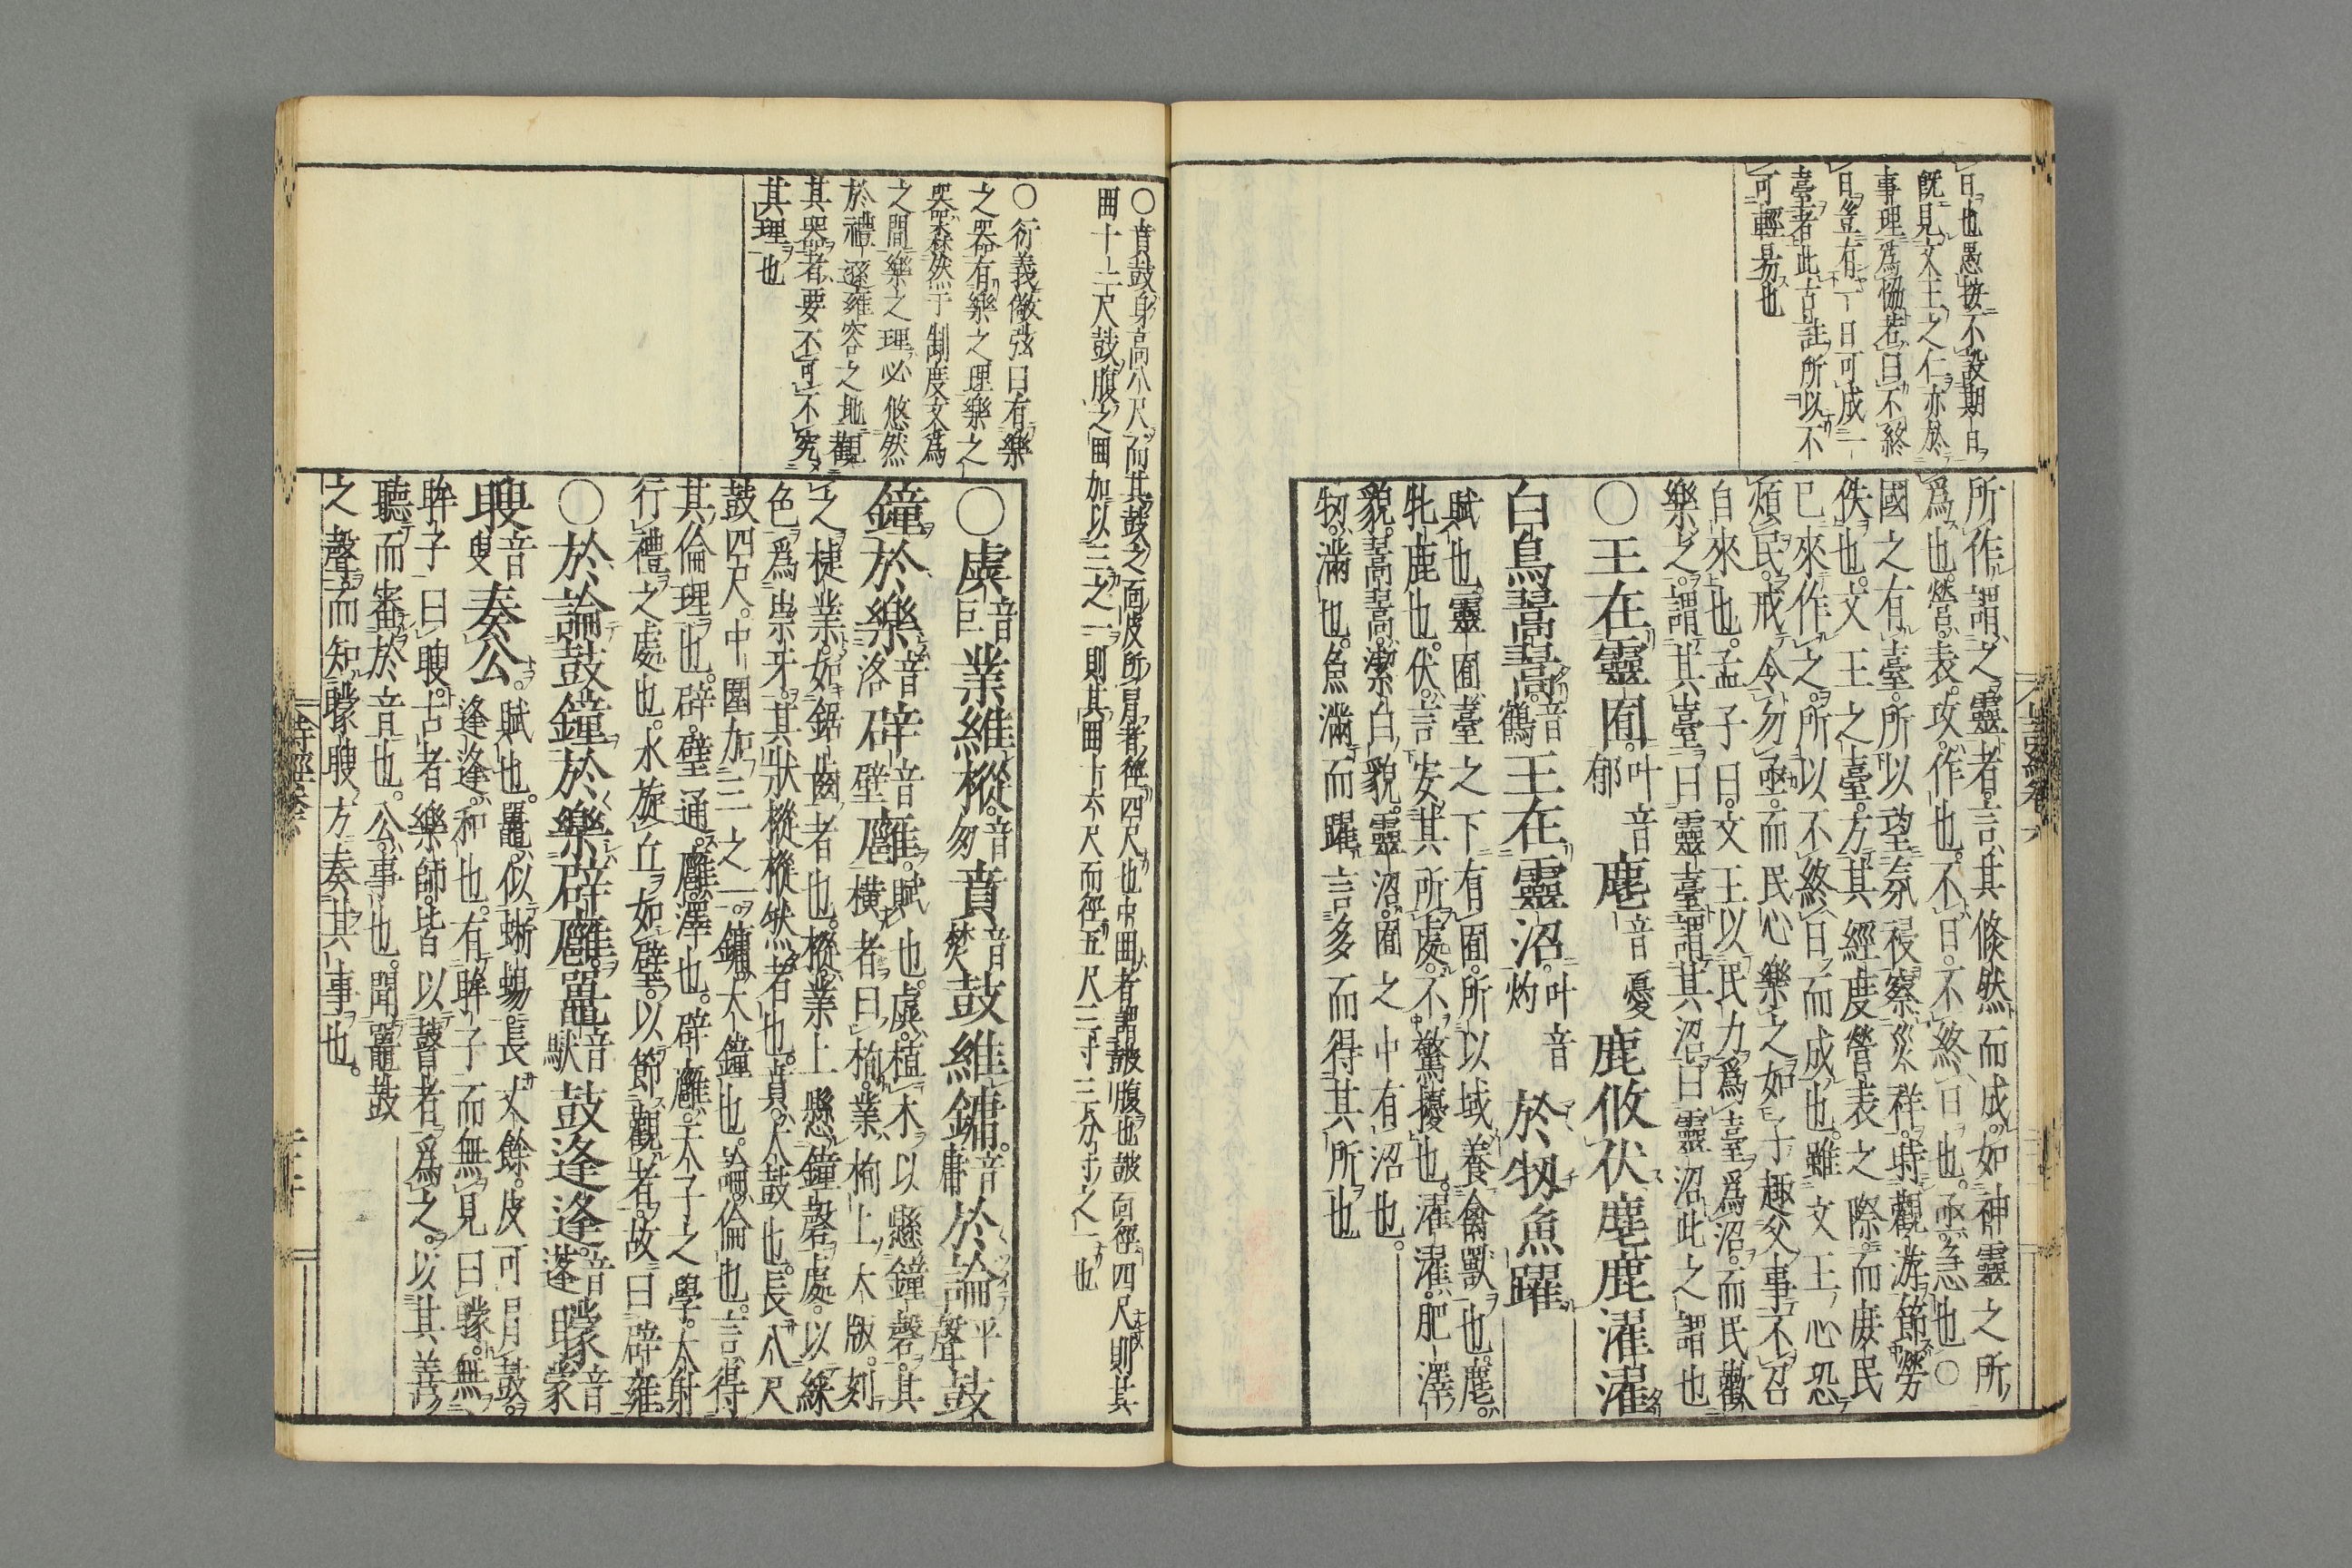 日也愚按不設期日
既見文王之仁亦於
事理爲恊若曰不終
日豈有一日可成一
臺者此古註所以不
可輕易也
所作謂之靈者言其倐然而成如神靈之所
爲也營表攻作也不日不終日也亟急也○
國之有臺所以望氛祲察災祥時觀游節勞
佚也文王之臺方其經度營表之際而庶民
已來作之所以不終日而成也雖文王心恐
煩民戒令勿亟而民心樂之如子趣父事不召
自來也孟子曰文王以民力爲臺爲沼而民歡
樂之謂其臺曰靈臺謂其沼曰靈沼此之謂也
○王在靈囿叶音郁麀音憂鹿攸伏麀鹿濯濯
白鳥翯翯音鶴王在靈沼叶音灼於牣魚躍
賦也靈囿臺之下有囿所以域養禽獸也麀
牝鹿也伏言安其所處不驚擾也濯濯肥澤
貌翯翯潔白貌靈沼囿之中有沼也
牣滿也魚滿而躍言多而得其所也
○賁鼓身高八尺而其鼓之面皮所冒者徑四尺也中囲者謂皷腹也皷面徑四尺則其
囲十二尺鼓腹之囲加以三之一則其囲十六尺而徑五尺三寸三分寸之一也
○衍義倣弦曰有樂
之器有樂之理樂之
器森然于制度文爲
之間樂之理必悠然
於禮遜雍容之地觀
其器者要不可不究
其理也
○虡音巨業維樅音匆賁音焚鼓維鏞音庸於論平聲鼓
鐘於樂音洛辟音壁廱賦也虡植木以懸鐘磬其
橫者曰栒業栒上大版刻
之捷業如鋸齒者也樅業上懸鐘磬處以綵
色爲崇牙其狀樅樅然者也賁大鼓也長八尺
鼓四尺中圍加三之一鏞大鐘也論倫也言得
其倫理也辟璧通廱澤也辟廱天子之學大射
行禮之處也水旋丘如璧以節觀者故曰辟雍
○於論鼓鐘於樂辟廱鼉音馱鼓逢逢音蓬矇音蒙
瞍音叟奏公賦也鼉似蜥蜴長丈餘皮可冒鼓
逢逢和也有眸子而無見曰矇無
眸子曰瞍古者樂師皆以瞽者爲之以其善
聽而審於音也公事也聞鼉鼓
之聲而知矇瞍方奏其事也